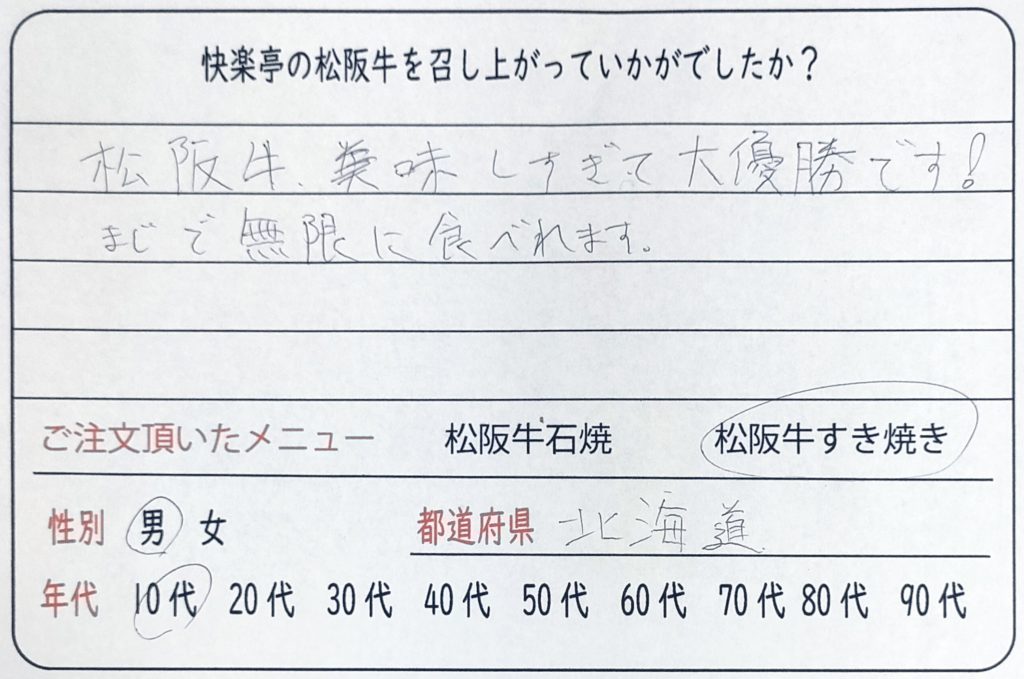 快楽亭の松阪牛を召し上がっていかがでしたか？
松阪牛、美味しすぎて大優勝です!
まじで無限に食べれます。
ご注文頂いたメニュー 松阪牛石焼 松阪牛すき焼き
性別 男 女 都道府県 北海道
年代 10代 20代 30代 40代 50代 60代 70代 80代 90代